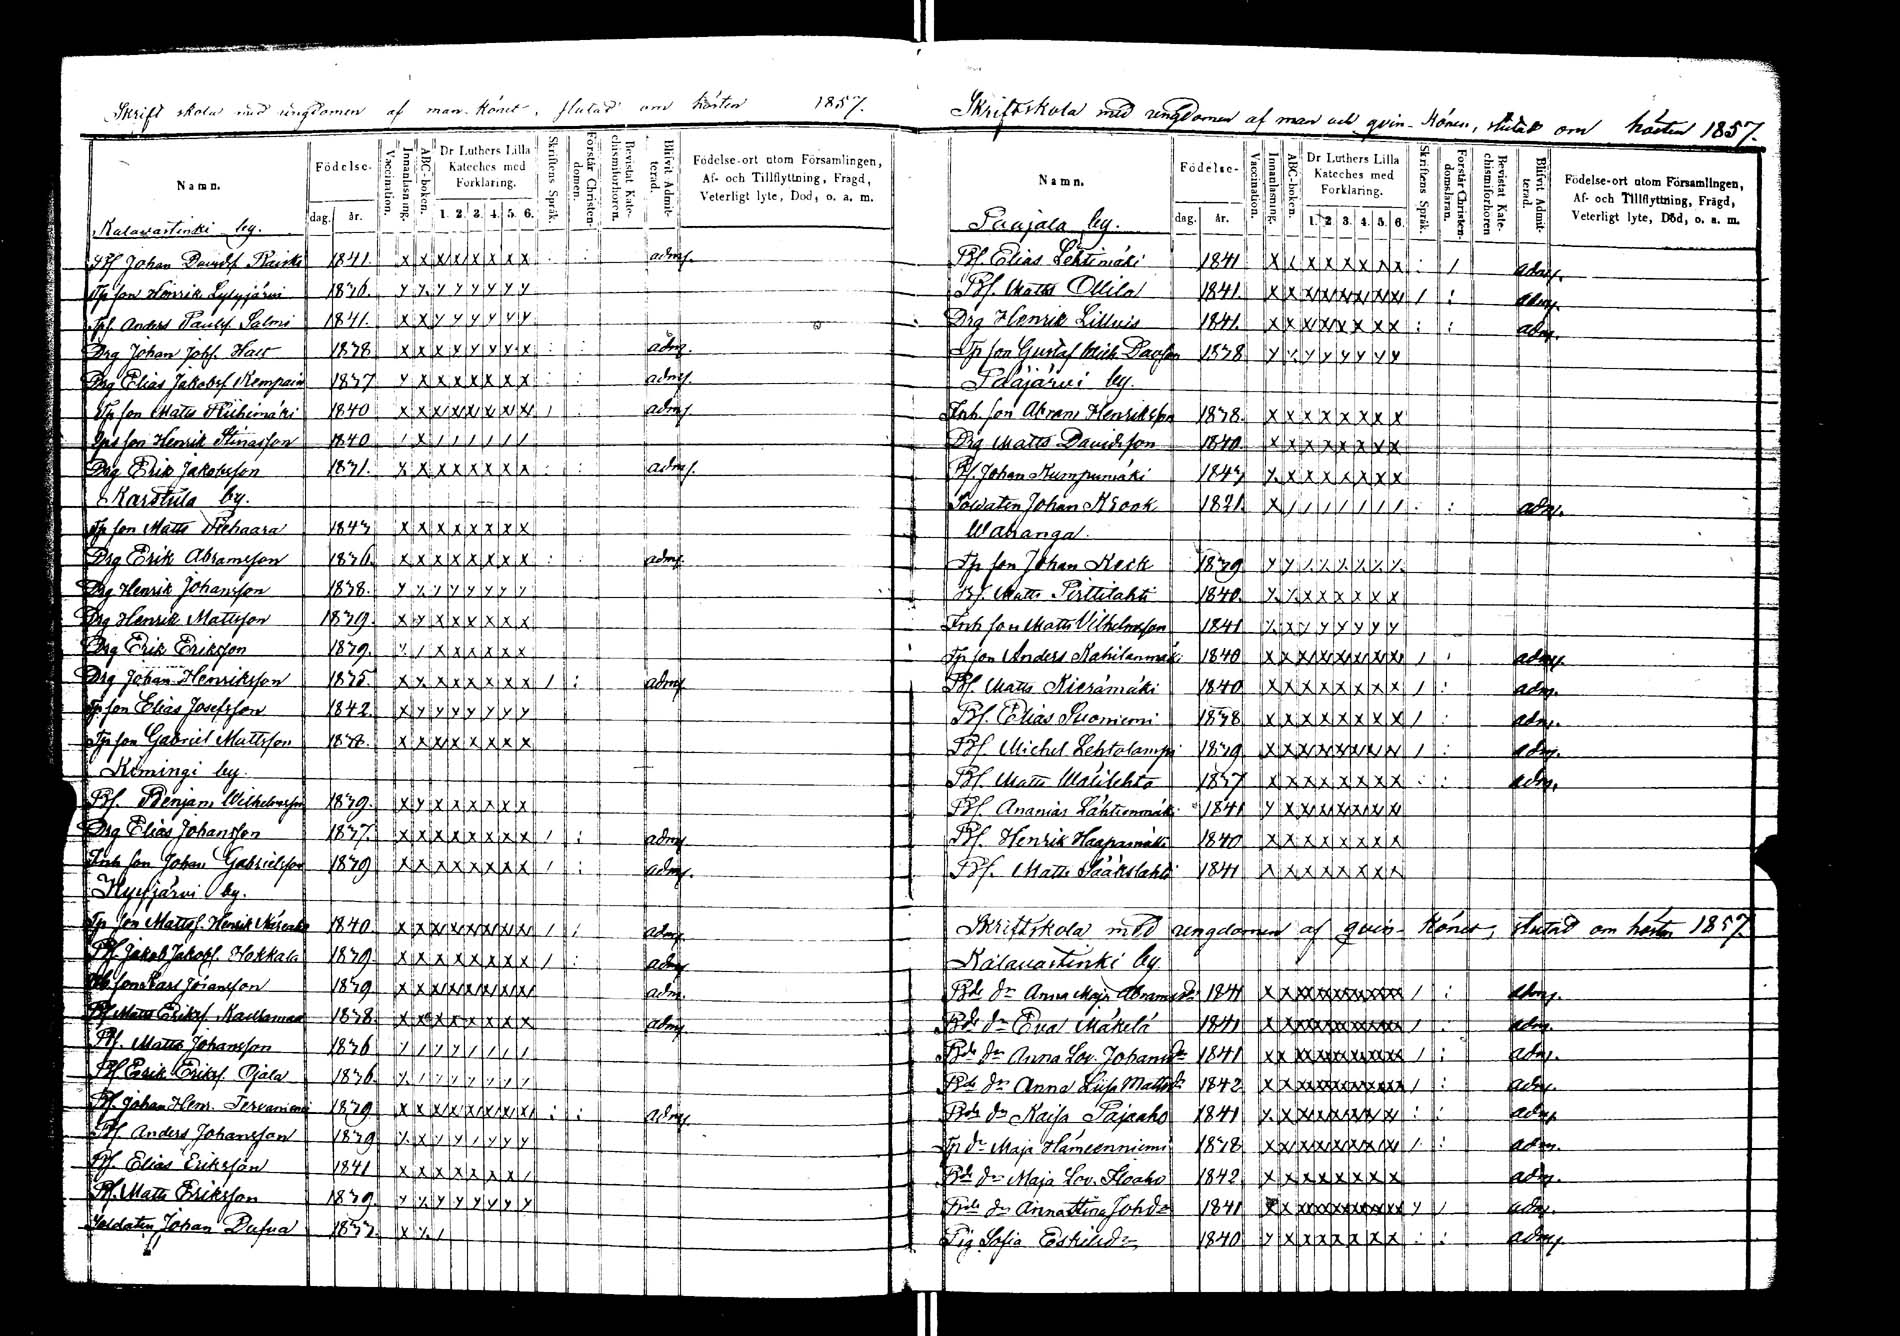 Skriftskola med ungdomen af man-könet, slutad om hösten 1857.
Namn. Födelse- dag. år. Vaccination. Innanläsning. ABC-boken. Dr Luthers Lilla Kateches med Förklaring. 1. 2. 3. 4. 5. 6. Skriftens Språk. Förstår Christendomen. Bevistat Katechismiforhoren. Blifvit Admitterad. Födelse-ort utom Församlingen, Af- och Tillflyttning, Fragd, Veterligt lyte, Dod, o. a. m.
Kalavastinki by.
Johan Davidsf. 1841. x x x x x x x x : : adm.
Tp son Henrik Lylyjärvi 1836. y y y y y y y y
Anders Paulsf. Salmi 1841. x x y y y y y y
Drg Johan Jobsf. 1838 x x x y y y y x : : adm.
Drg Elias Jakobsf. Kempain 1837 y x x x x x x x : : adm.
Tp son Matts Riihimäki 1840 x x x x x x x x / : adm.
son Henrik Stinasson 1840 / x / / / / / /
Drg Erik Jakobsson 1831. x x x x x x x x : : adm.
Karstula by.
Tp son Matts 1843 x x x x x x x x
Drg Erik Abramsson 1836. x x x x x x x x : : adm.
Drg Henrik Johansson 1838. y y y y y y y y
Drg Henrik Mattsson 1839. x y x x x x x x
Drg Erik Eriksson 1839. y / x x x x x x
Drg Johan Henriksson 1835. x x x x x x x x / : adm.
Tp son Elias Josefsson 1842. x y y y y y y y
Tp son Gabriel Mattsson x x x x x x x x
Kimingi by.
Bf. Benjam Wilhelmsson 1839. x y x x x x x x
Drg Elias Johansson 1837. x x x x x x x x / : adm.
Inh son Johan Gabrielsson 1839 x x x x x x x x / : adm.
Kyyjärvi by.
Tp son Mattsf. Henrik 1840 x x x x x x x x / : adm.
Bf. Jakob Jakobsf. Hokkala 1839 x x x x x x x x / : adm.
son Lars Johansson 1839 x x x x x x x x adm.
Bf Matts Eriksf. 1838. x x x x x x x x adm.
Bf. Matts Johansson 1836 y / y y / / / /
Bf Erik Eriksf. Ojala 1836. y / y y y y y y
Bf. Johan Henr. Tervaniemi 1839 x x x x x x x x : : adm.
Bf. Anders Johansson 1839 y x y y / y y y
Bf. Elias Eriksson 1841 x x x x x x x /
Bf. Matts Eriksson 1839. y y y y y y y y
Soldaten Johan Dufva x y /
Skriftskola med ungdomen af man och qvin-könen, slutad om hösten 1857.
Namn. Födelse- dag. år. Vaccination. Innanlasning. ABC-boken. Dr Luthers Lilla Kateches med Förklaring. 1. 2 3. 4. 5. 6. Skriftens Språk. Förstår Christendomsläran. Bevistat Katechismiförhören Blifvit Admitterad. Födelse-ort utom Församlingen, Af- och Tillflyttning, Frägd, Veterligt lyte, Död, o. a. m.
Paajala by.
Bf. Elias Lehtimäki 1841 x x x x x x x x : / adm.
Bf. Matts Ollila 1841. x x x x x x x x / : adm.
Drg Henrik Lillvis 1841. x x x x x x x x : : adm.
Tp son Gustaf Mich 1838 y y y y y y y y
Pääjärvi by.
Inh. son Abram Henriksson 1838. x x x x x x x x
Drg Matts Davidsson 1840. x x x x x x x x
Bf. Johan Kumpumäki 1843 x x x x x x x x
Soldaten Johan Kronk 1821. x / / / / / / / : : adm.
Wahanga.
Tp son Johan Keck 1839 y y y y y y y y
Bf. Matts Pirttilahti 1840. y y x x x x x x
Inh son Matts Vilhelmsson 1841 x x y y y y y y
Tp son Anders Kahilanmäki 1840 x x x x x x x x / : adm.
Bf. Matts Kierämäki 1840 x x x x x x x x / : adm.
Bf. Elias Suoniemi 1838 x x x x x x x x / : adm.
Bf. Michel Lehtolampi 1839 x x x x x x x x / : adm.
Bf. Matts 1837 x x x x x x x x : : adm.
Bf. Ananias Lähteenmäki 1841 y x x x x x x x
Bf. Henrik Haapamäki 1840 x x x x x x x x
Bf. Matts Sääkslahti 1841 x x x x x x x x
Skriftskola med ungdomen af qvin-könet, slutad om hösten 1857.
Kalavastinki by.
Bde dr Anna Maja Abramsdr 1841 x x x x x x x x / : adm.
Bde dr Eva Mäkelä 1841 x x x x x x x x / : adm.
Bde dr Anna Lov. Johansdr 1841 x x x x x x x x / : adm.
Bde dr Anna Lisa Mattsdr 1842 x x x x x x x x / : adm.
Bde dr Kaisa Pajaaho 1841 x x x x x x x x : : adm.
Tp dr Maja Hämeenniemi 1838 x x x x x x x x / : adm.
Bde dr Maja Lov. Iloaho 1842 x x x x x x x x adm.
Bde dr Anna Stina Johdr 1841 x x x x x x x x y / adm.
Pig Sofia Eskilsdr 1840 y x x x x x x x : : adm.